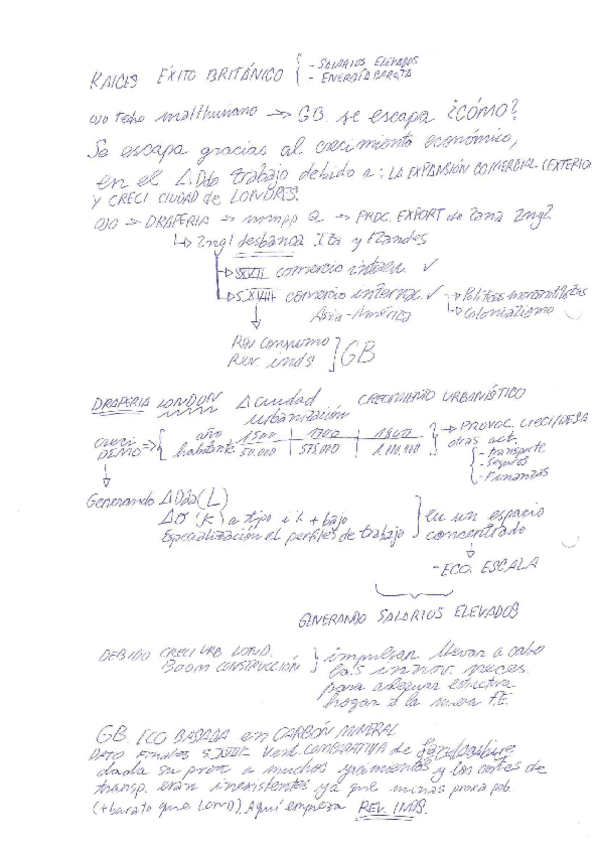 RAICES ÉXITO BRITÁNICO { - SALARIOS ELEVADOS
- ENERGÍA BARATA
OJO Techo malthusiano → GB. se escapa ¿CÓMO?
Se escapa gracias al crecimiento económico,
en el Δ Dda trabajo debido a: LA EXPANSIÓN COMERCIAL (EXTERIOR
Y CRECI CIUDAD de LONDRES.
OJO → DRAPERIA → → PROC. EXPORT de lana Ingl.
↳ Ingl desbanca Ita y Flandes
→ SXVII comercio intern. ✓
→ SXVIII comercio internac. ✓ → Políticas mercantilistas
Asia-América ↳ Colonialismo
Rev Consumo
Rev. inds ] GB
DRAPERIA LONDON Δ ciudad CRECIMIENTO URBANÍSTICO
urbanización
creci DEMO ⇒ { año 1500 | 1700 | 1800 } → PROVOC. CRECI/DESA
habitante 50.000 | 575.000 | otras act.
- transporte
- Seguros
- Finanzas
Generando Δ Dda (L)
Δ (K) a tipo i + bajo } en un espacio
Especialización el perfiles de trabajo concentrado
- ECO. ESCALA
GENERANDO SALARIOS ELEVADOS
DEBIDO CRECI URB LOND. } impulsan llevar a cabo
BOOM CONSTRUCCIÓN las innov. neces.
para adecuar estructura
hogar a la nueva F.E.
GB. ECO BASADA en CARBÓN MINERAL
DATO Finales SXVIII Vent. COMPARATIVA de
dada su prox a muchos yacimientos y los costes de
transp. eran inexistentes ya que minas prox a pob.
(+ barato que LOND). Aquí empieza REV. INDS.